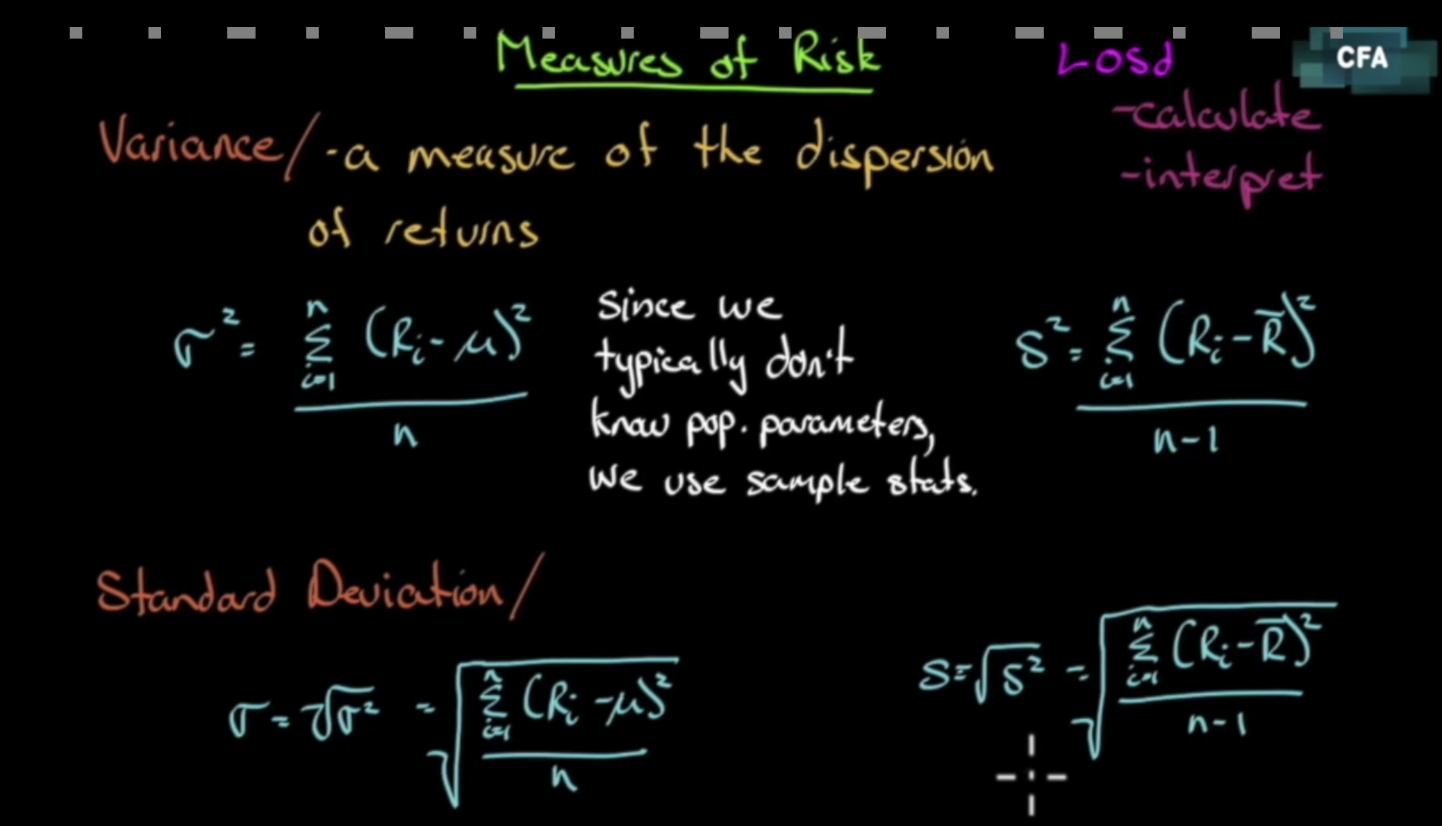 Measures of Risk
LOSd
CFA
-calculate
-interpret
Variance/ -a measure of the dispersion
of returns
σ² = Σ (Rᵢ - μ)²
n
i=1
n
Since we
typically don't
know pop. parameters,
we use sample stats.
s² = Σ (Rᵢ - R̄)²
n
i=1
n-1
Standard Deviation/
σ = √σ² = √ Σ (Rᵢ - μ)²
n
i=1
n
s = √s² = √ Σ (Rᵢ - R̄)²
n
i=1
n-1